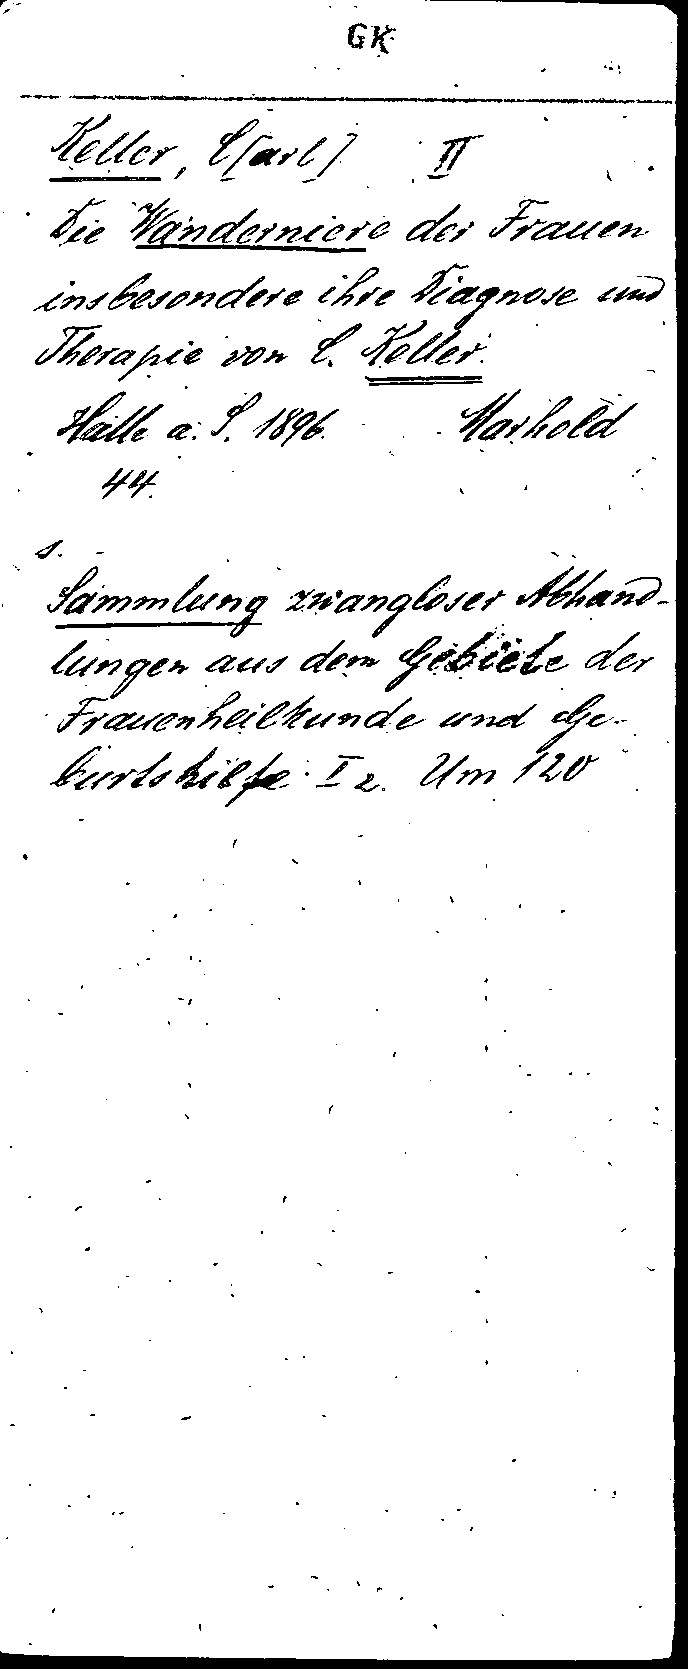 GK
Keller, C[arl] II
Die Wanderniere der Frauen
insbesondere ihre Diagnose und
Therapie von C. Keller.
Halle a. S. 1896. Marhold
44.
s.
Sammlung zwangloser Abhand-
lungen aus dem Gebiete der
Frauenheilkunde und Ge-
burtshilfe I 2. Um 120